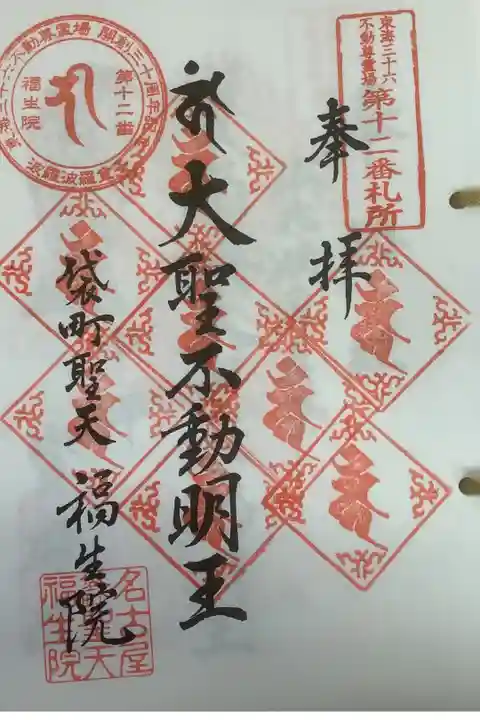 東海三十六
不動尊霊場
第十二番札所
奉拝
大聖不動明王
袋町聖天 福生院
開創三十周年
第十二番
福生院
名古屋
福生院